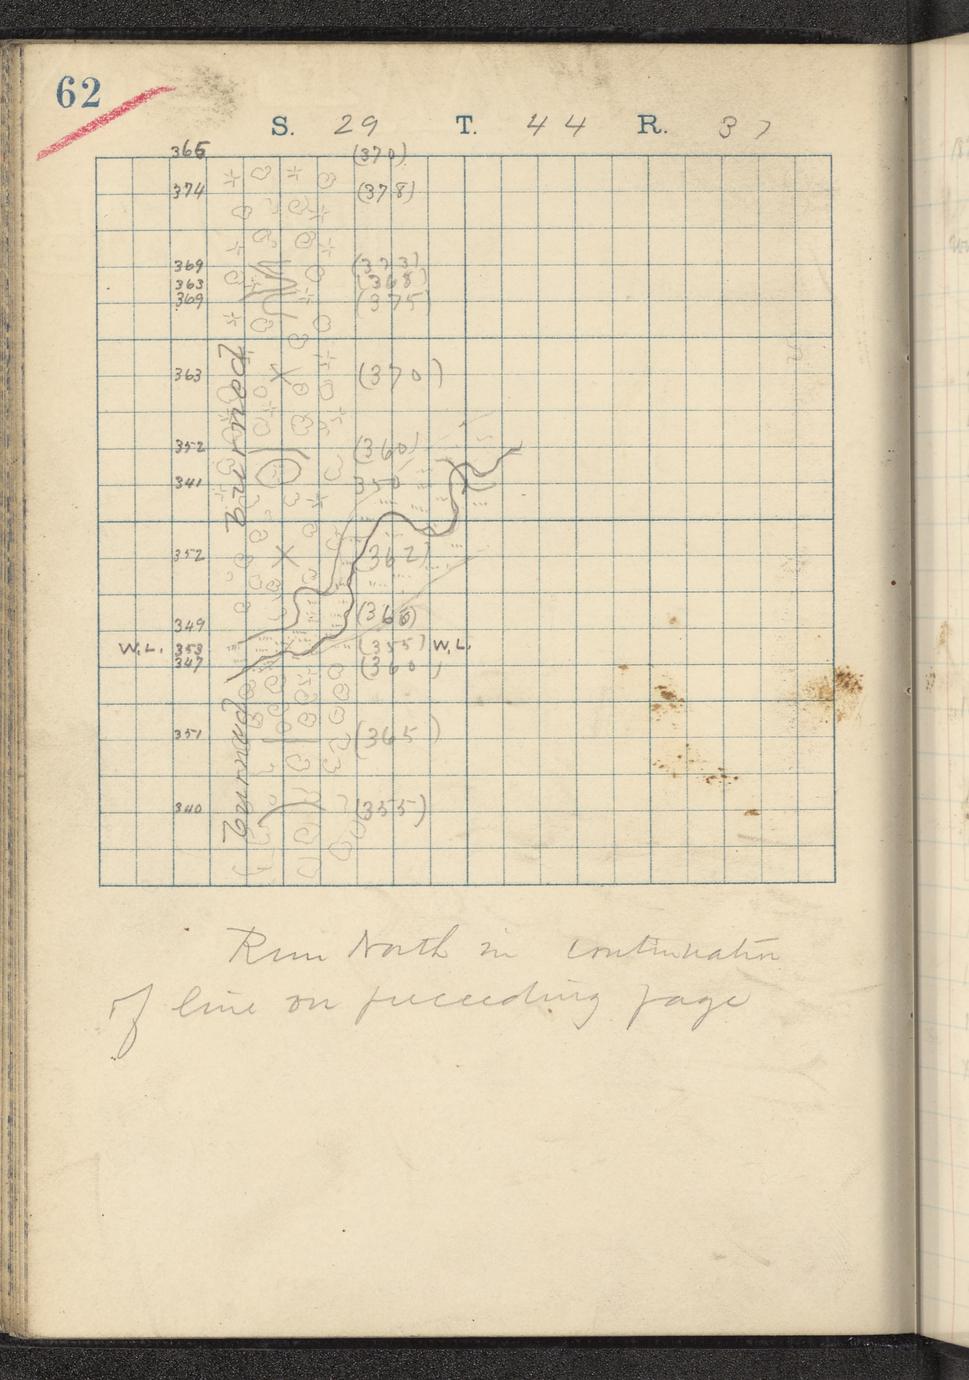 62
S. 29 T. 44 R. 37
365 (370)
374 (378)
369 (373)
363 (368)
369 (375)
363 (370)
352 (360)
341 350
352 (362)
349 (360)
W.L. 353 (355) W.L.
347 (360)
351 (365)
340 (355)
Burned
Burned
Run North in continuation
of line on preceeding page